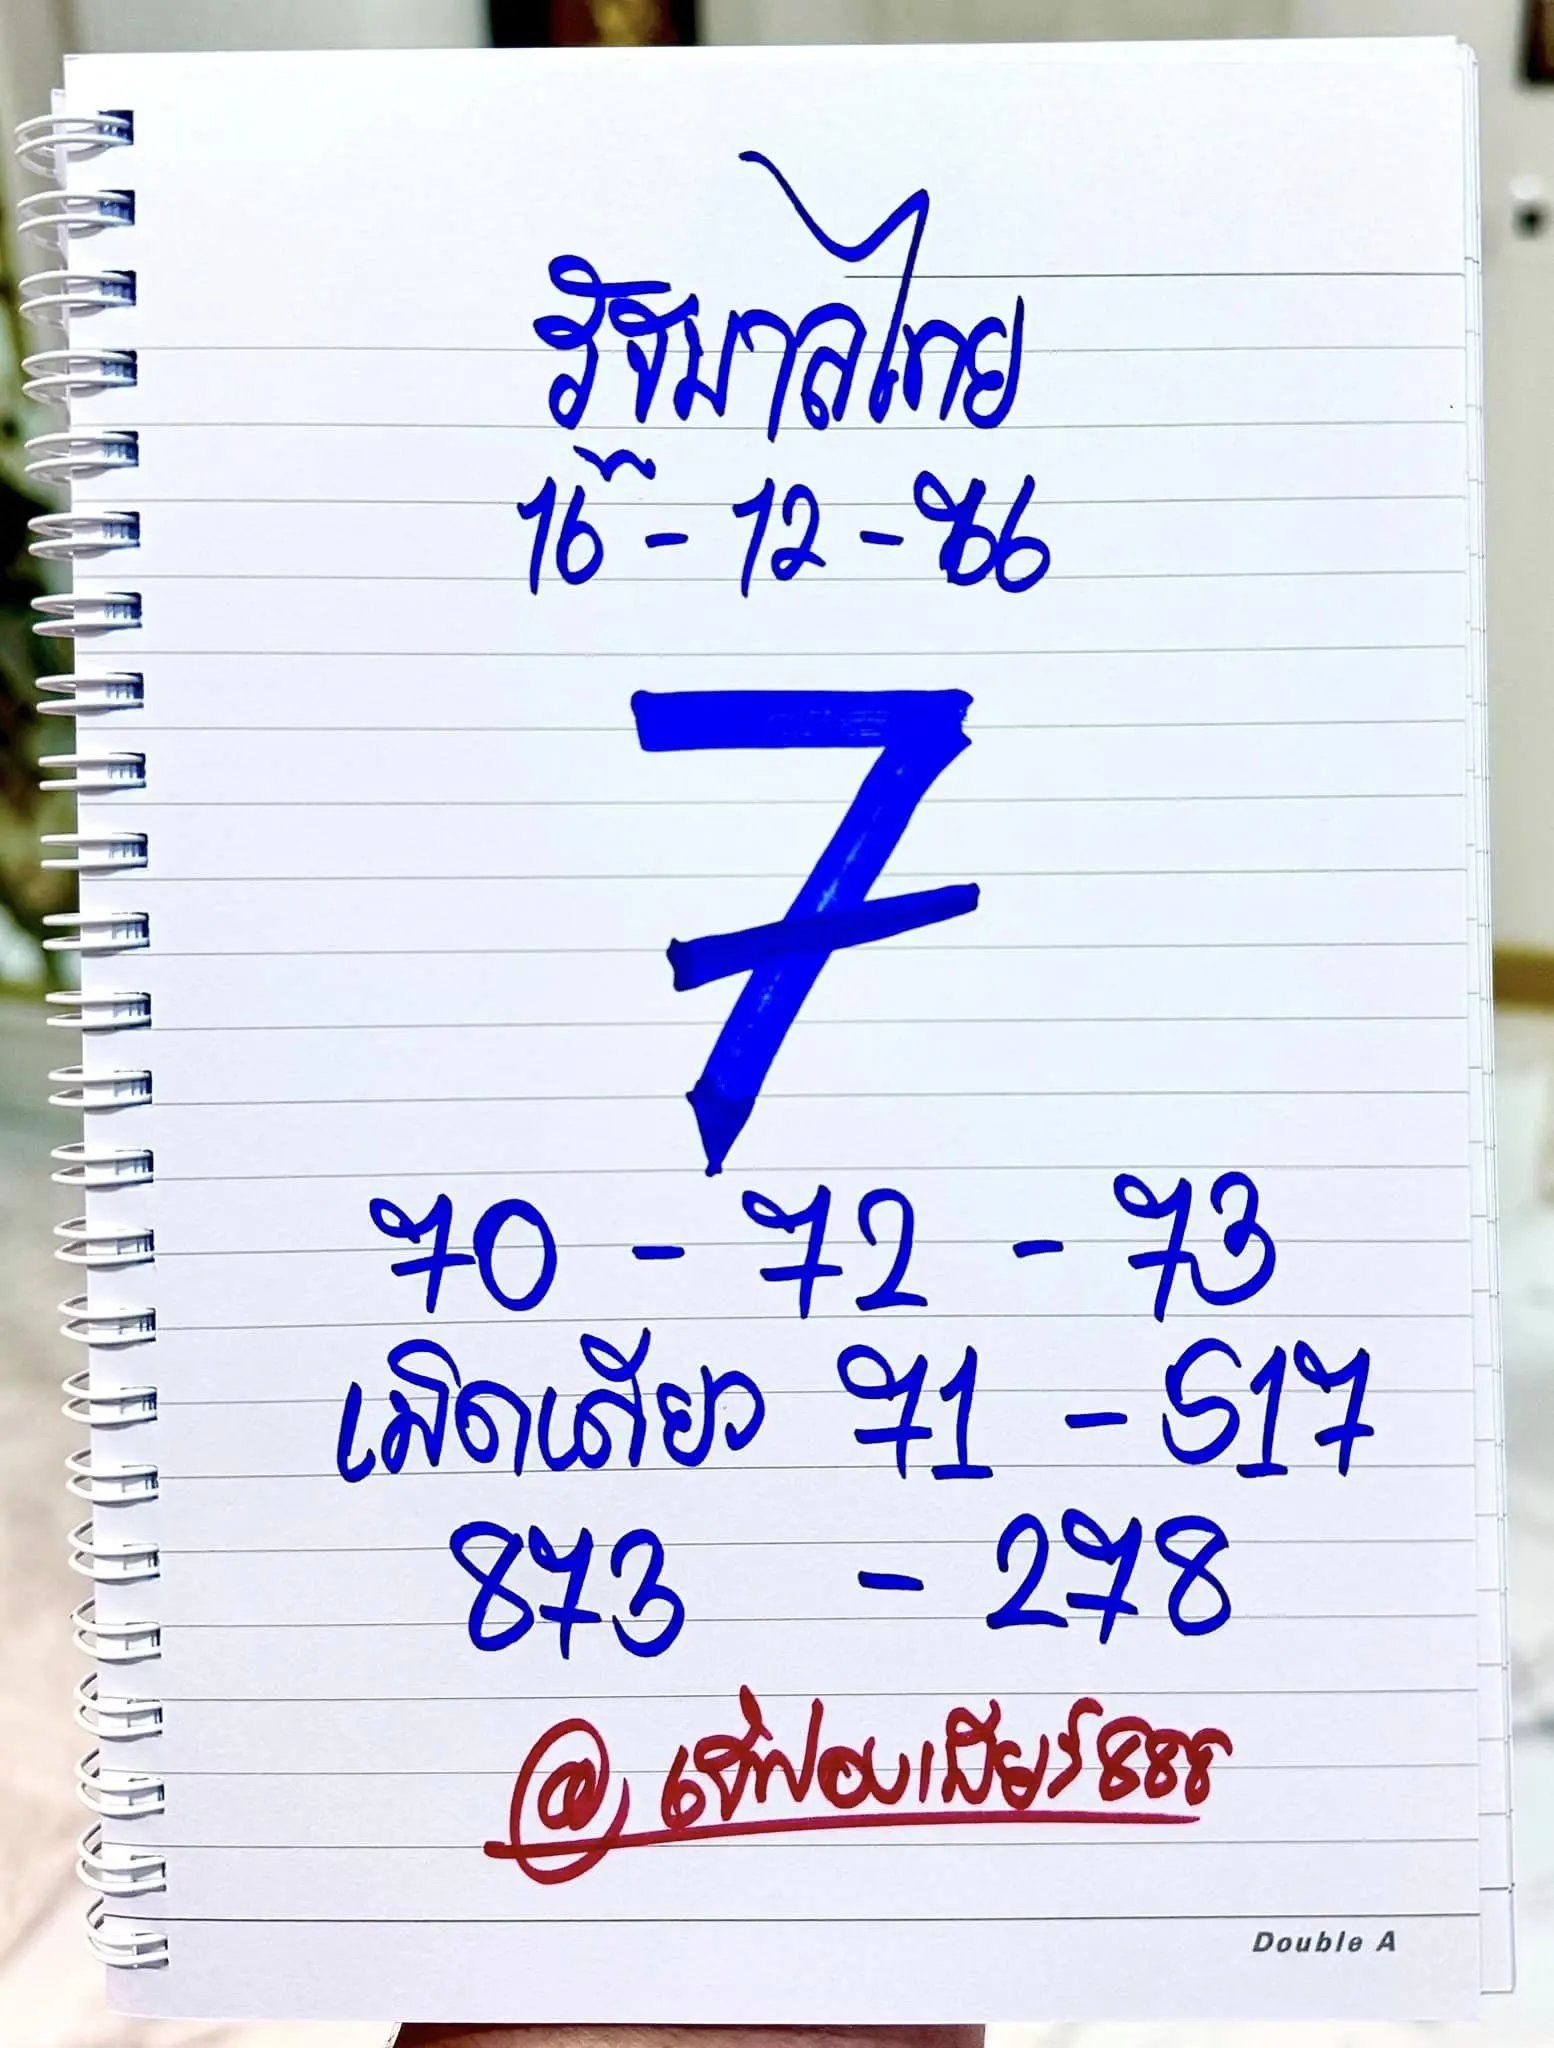 รัฐบาลไทย
16 - 12 - 66
7
70 - 72 - 73
เม็ดเดียว 71 - 517
873 - 278
@ เจ๊ฟองเบียร์888
Double A